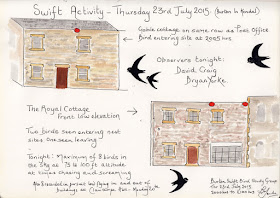 Swift Activity - Thursday 23rd July 2015. (Burton In Kendal)
Gable cottage on same row as Post Office
Bird entering site at 2005 hrs.
Observers tonight:
David, Craig
Bryan Yorke.
The Royal Cottage
Front low elevation
Two birds seen entering nest
sites one seen leaving
Tonight: Maximum of 8 birds in
the sky at 75 to 100 ft altitude
at times chasing and screaming
Also 3 recorded in pursuit low flying in and out of
buildings at
Burton Swift Bird Study Group
Thr 23rd July 2015